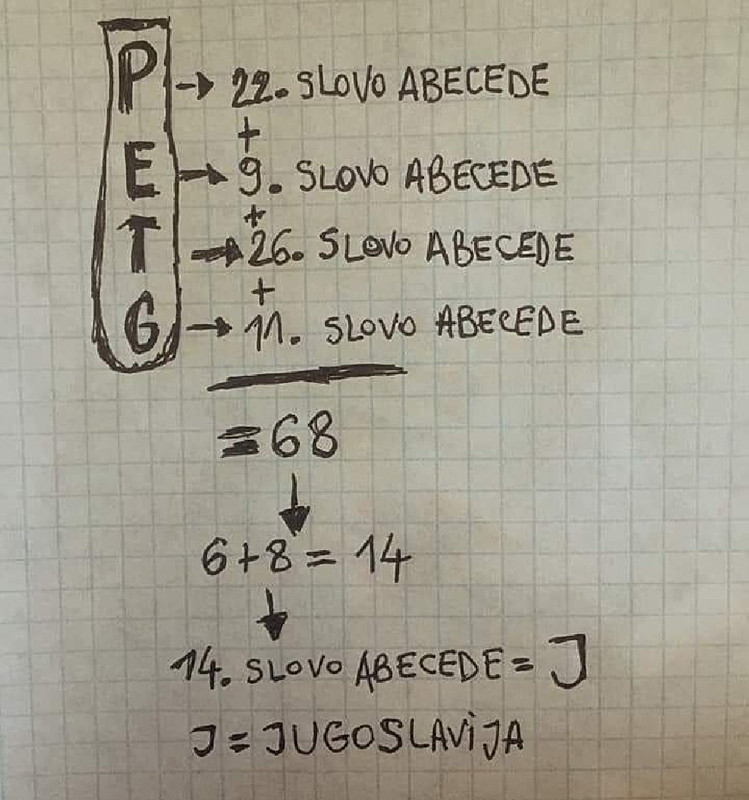 P → 22. SLOVO ABECEDE
+
E → 9. SLOVO ABECEDE
+
T → 26. SLOVO ABECEDE
+
G → 11. SLOVO ABECEDE
= 68
↓
6+8 = 14
↓
14. SLOVO ABECEDE = J
J = JUGOSLAVIJA